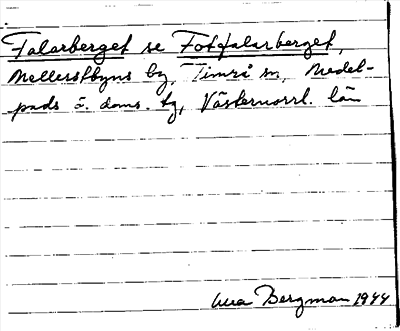 Falarberget se Fotfalarberget,
Mellerstbyns by, Timrå sn, Medel-
pads ö. doms. tg, Västernorrl. län
Bergman 1944